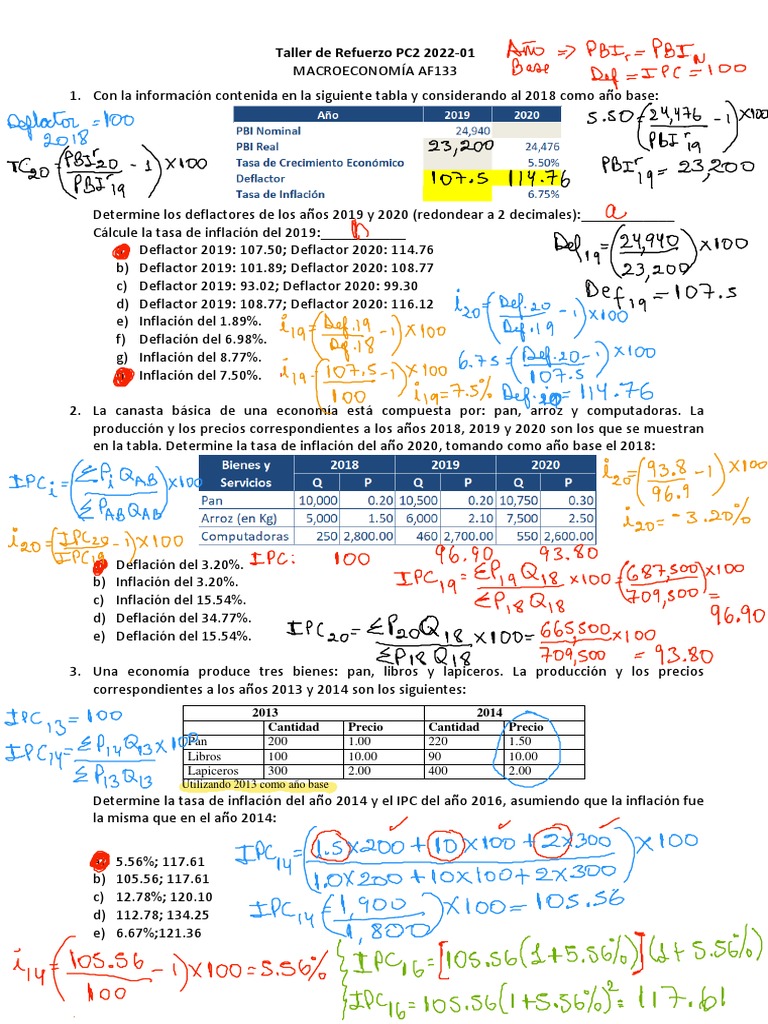 Taller de Refuerzo PC2 2022-01
MACROECONOMÍA AF133
Año => PBI r = PBI N
Base Def = IPC = 100
1. Con la información contenida en la siguiente tabla y considerando al 2018 como año base:
Deflactor = 100
2018
TC20 = (PBIr20 / PBIr19 - 1) x 100
Año 2019 2020
PBI Nominal 24,940
PBI Real 23,200 24,476
Tasa de Crecimiento Económico 5.50%
Deflactor 107.5 114.76
Tasa de Inflación 6.75%
5.50 = (24,476 / PBIr19 - 1) x 100
PBIr19 = 23,200
Determine los deflactores de los años 2019 y 2020 (redondear a 2 decimales): a
Cálcule la tasa de inflación del 2019: h
a) Deflactor 2019: 107.50; Deflactor 2020: 114.76
b) Deflactor 2019: 101.89; Deflactor 2020: 108.77
c) Deflactor 2019: 93.02; Deflactor 2020: 99.30
d) Deflactor 2019: 108.77; Deflactor 2020: 116.12
e) Inflación del 1.89%.
f) Deflación del 6.98%.
g) Inflación del 8.77%.
Inflación del 7.50%.
Def19 = (24,940 / 23,200) x 100
Def19 = 107.5
i19 = (Def.19 / Def.18 - 1) x 100
i19 = (107.5 / 100 - 1) x 100
i19 = 7.5%
i20 = (Def.20 / Def.19 - 1) x 100
6.75 = (Def.20 / 107.5 - 1) x 100
Def.20 = 114.76
2. La canasta básica de una economía está compuesta por: pan, arroz y computadoras. La
producción y los precios correspondientes a los años 2018, 2019 y 2020 son los que se muestran
en la tabla. Determine la tasa de inflación del año 2020, tomando como año base el 2018:
IPCi = (ΣPi QAB / ΣPAB QAB) x 100
i20 = (IPC20 / IPC19 - 1) x 100
Bienes y Servicios 2018 2019 2020
Q P Q P Q P
Pan 10,000 0.20 10,500 0.20 10,750 0.30
Arroz (en Kg) 5,000 1.50 6,000 2.10 7,500 2.50
Computadoras 250 2,800.00 460 2,700.00 550 2,600.00
IPC: 100 96.90 93.80
i20 = (93.8 / 96.9 - 1) x 100
i20 = -3.20%
Deflación del 3.20%.
b) Inflación del 3.20%.
c) Inflación del 15.54%.
d) Deflación del 34.77%.
e) Deflación del 15.54%.
IPC19 = ΣP19 Q18 / ΣP18 Q18 x 100 = (687,500 / 709,500) x 100 = 96.90
IPC20 = ΣP20 Q18 / ΣP18 Q18 x 100 = 665,500 / 709,500 x 100 = 93.80
3. Una economía produce tres bienes: pan, libros y lapiceros. La producción y los precios
correspondientes a los años 2013 y 2014 son los siguientes:
IPC13 = 100
IPC14 = ΣP14 Q13 / ΣP13 Q13 x 100
2013 2014
Cantidad Precio Cantidad Precio
Pan 200 1.00 220 1.50
Libros 100 10.00 90 10.00
Lapiceros 300 2.00 400 2.00
Utilizando 2013 como año base
Determine la tasa de inflación del año 2014 y el IPC del año 2016, asumiendo que la inflación fue
la misma que en el año 2014:
5.56%; 117.61
b) 105.56; 117.61
c) 12.78%; 120.10
d) 112.78; 134.25
e) 6.67%;121.36
IPC14 = (1.5x200 + 10x100 + 2x300 / 1.0x200 + 10x100 + 2x300) x 100
IPC14 = (1,900 / 1,800) x 100 = 105.56
i14 = (105.56 / 100 - 1) x 100 = 5.56%
IPC16 = [105.56(1+5.56%)](1+5.56%)
IPC16 = 105.56(1+5.56%)² = 117.61